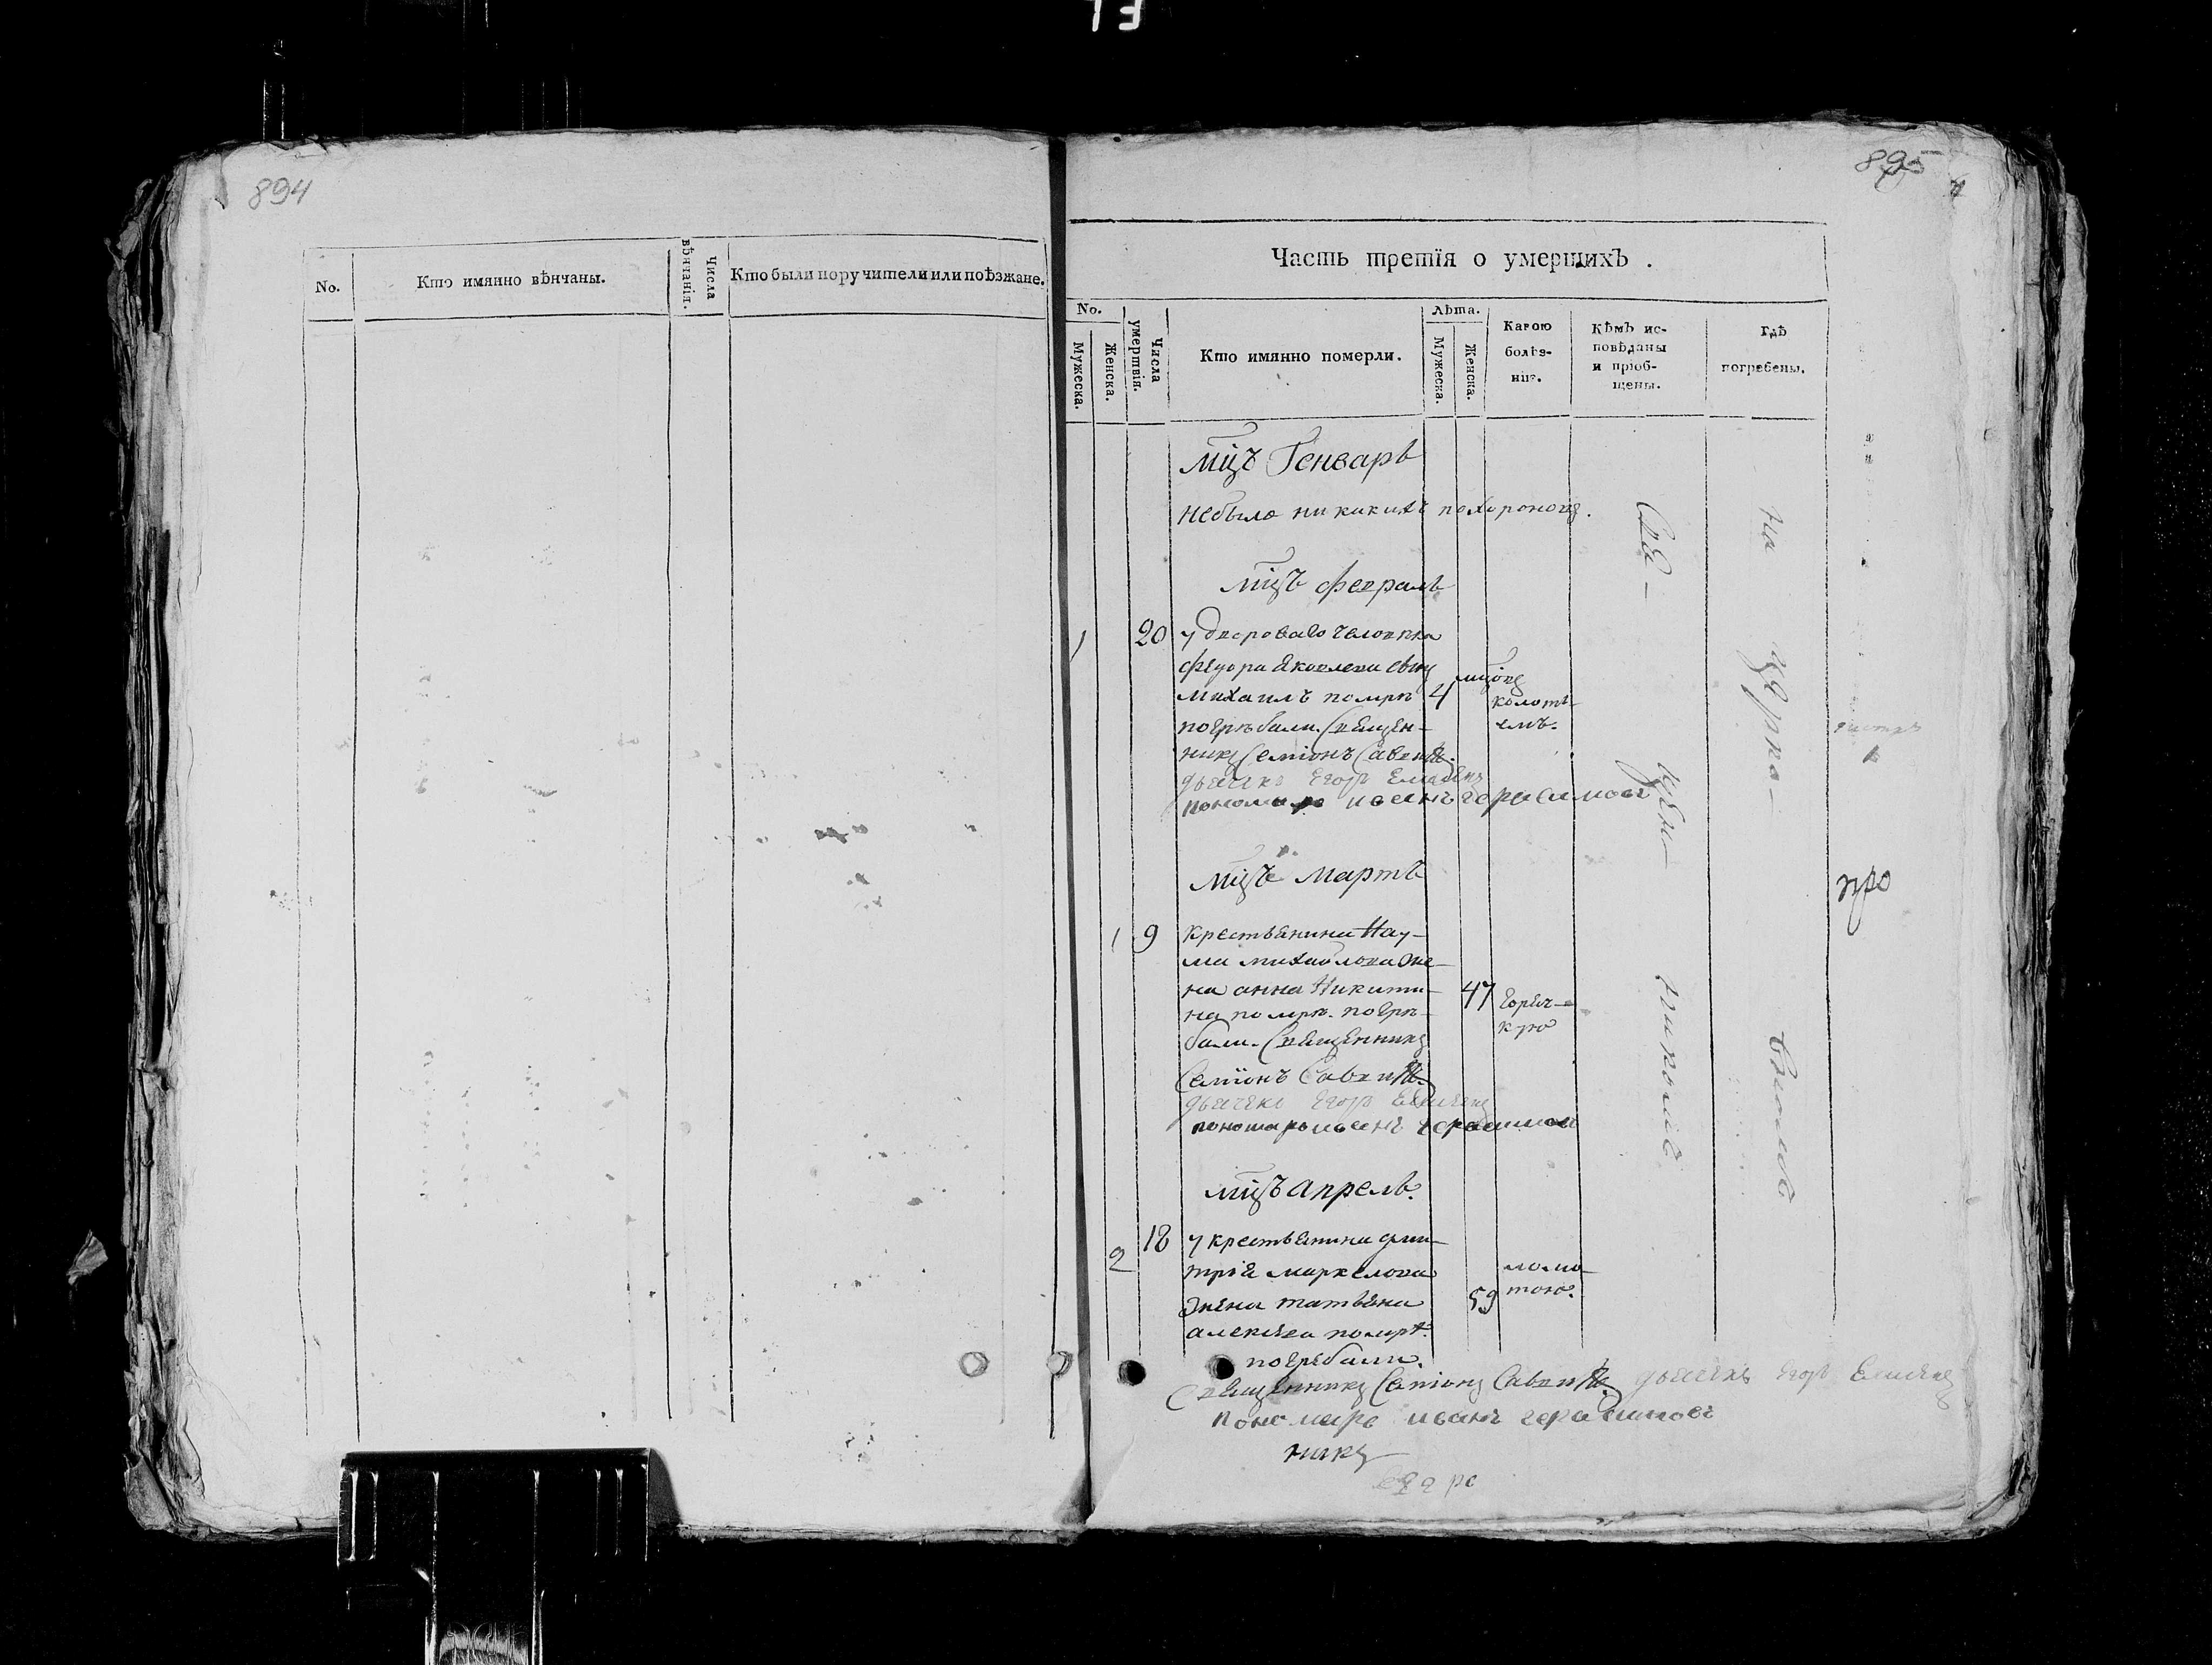 894
No.
Кто имянно вѣнчаны.
Числа вѣнчанія.
Кто были поручители или поѣзжане.
895
Часть третія о умершихъ.
No.
Мужеска.
Женска.
Числа умертвія.
Кто имянно померли.
Лѣта.
Мужеска.
Женска.
Какою болѣз-
нію.
Кѣмъ ис-
повѣданы
и пріоб-
щены.
Гдѣ
погребены.
мцъ Генварь
небыло никакихъ похороновъ.
мцъ февраль
1 20 у двороваго человѣка
федора Яковлева сынъ
михаилъ помре 4 мцовъ колоть-
емъ.
погребали. Священ-
никъ Семіонъ Саввинъ.
дьячекъ Егоръ
пономарь иванъ герасимовъ
мцъ мартъ
1 9 крестьянина Нау-
ма михайлова же-
на анна Никити-
на помре. погре-
бали. Священникъ
47 горяч-
кою
Семіонъ Саввинъ.
дьячекъ Егоръ
пономарь иванъ герасимовъ
мцъ апрель.
2 18 у крестьянина дми-
трія маркелова
жена татьяна
алексѣва помре.
погребали.
59 ломо-
тою.
Священникъ Семіонъ Саввинъ. дьячекъ Егоръ
пономарь иванъ герасимовъ
никъ
на
про